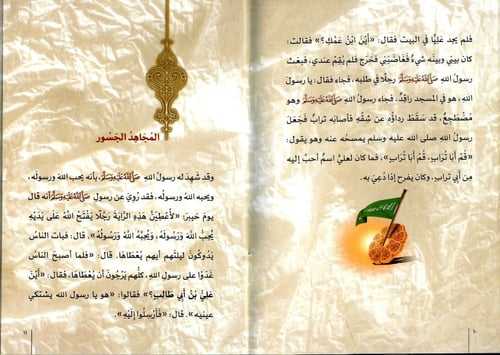 فلم يجد عَليًّا في البيت فقال: «أَيْنَ ابْنُ عَمِّكِ؟» فقالت:
كان بيني وبينه شيءٌ فَغَاضَبَنِي فَخَرَج فلم يُقِمْ عندي، فبعَث
رسولُ اللهِ ﷺ رجلًا في طلبه، فجاء فقال: يا رسولَ
اللهِ، هو في المسجد راقدٌ، فجاء رسولُ اللهِ ﷺ وهو
مُضْطَجِعٌ، قد سقَط رداؤه عن شِقِّه فأصابه ترابٌ فَجَعَلَ
رسولُ اللهِ صلى الله عليه وسلم يمسحُه عنه وهو يقول:
«قُمْ أَبَا تُرَابٍ، قُمْ أَبَا تُرَابٍ»، فما كان لعليٍّ اسمٌ أحبَّ إليه
مِن أبي ترابٍ، وكان يفرح إذا دُعِيَ به.
١٠
المُجَاهِدُ الجَسُور
وقد شَهِدَ له رسولُ اللهِ ﷺ، بأنه يحب اللهَ ورسولَه،
ويحبه اللهُ ورسولُه، فقد رُوِيَ عن رسولِ اللهِ ﷺ أنه قال
يومَ خيبرَ: «لأُعْطِيَنَّ هَذِهِ الرَّايَةَ رَجُلًا يَفْتَحُ اللهُ عَلَى يَدَيْهِ
يُحِبُّ اللهَ وَرَسُولَهُ، وَيُحِبُّهُ اللهُ وَرَسُولُهُ». قال: فبات الناسُ
يَدُوكُونَ ليلتَهم أيهم يُعْطَاهَا. قال: «فلما أصبحَ الناسُ
غَدَوْا على رسولِ اللهِ، كلُّهم يَرْجُونَ أن يُعْطَاهَا، فقال: «أَيْنَ
عَلِيُّ بْنُ أَبِي طَالِبٍ؟» فقالوا: «هو يا رسولَ اللهِ يشتكي
عينيه». قال: «فَأَرْسِلُوا إِلَيْهِ».
١١